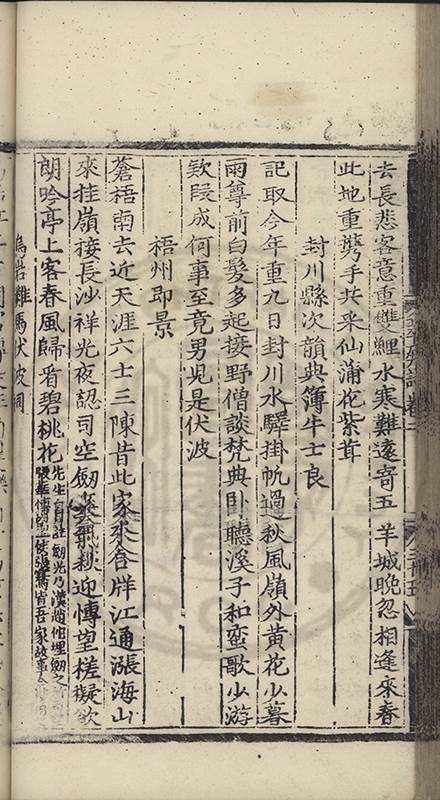 去長悲客意重雙鯉水寒難遠寄五羊城晚忽相逢來春
此地重攜手共采仙蒲花紫茸
封川縣次韻典簿牛士良
記取今年重九日封川水驛掛帆過秋風嶺外黃花少暮
雨尊前白髮多起接野僧談梵典臥聽溪子和蠻歌少游
欵段成何事至竟男兒是伏波
梧州即景
蒼梧南去近天涯六士三陳昔此家來合牂江通漲海山
來桂嶺接長沙祥光夜認司空劒秋迎博望槎擬欲
朗吟亭上客春風歸看碧桃花先生自註劒光乃漢趙佗埋劒之
張騫皆吾家故事
烏岩灘馬伏波祠